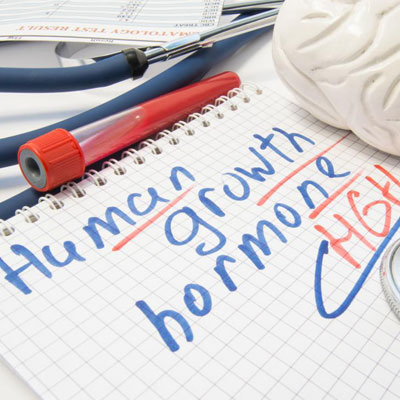 MATOLOGY TEST RESULT
Human
growth
hormone
HGH